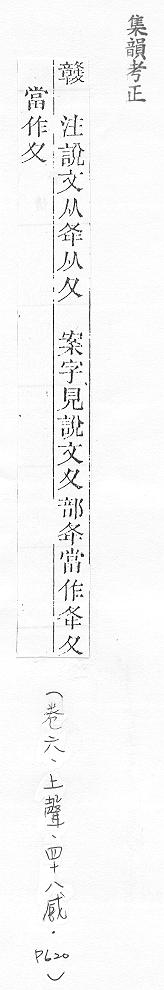 集韻考正
竷 注說文从夅从夂 案字見說文夊部夅當作夆夂
當作夊
（卷六、上聲、四十八感．P620）